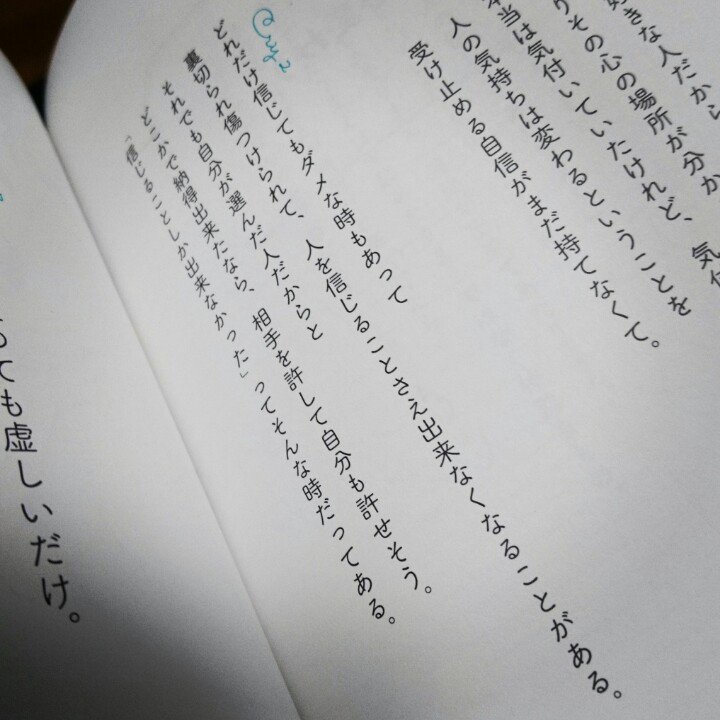 きな人だから
りその心の場所が分か
当は気付いていたけれど、気付
人の気持ちは変わるということを
受け止める自信がまだ持てなくて。
どれだけ信じてもダメな時もあって
裏切られ傷つけられて、人を信じることさえ出来なくなることがある。
それでも自分が選んだ人だからと
どこかで納得出来たなら、相手を許して自分も許せそう。
「信じることしか出来なかった」ってそんな時だってある。
ても虚しいだけ。